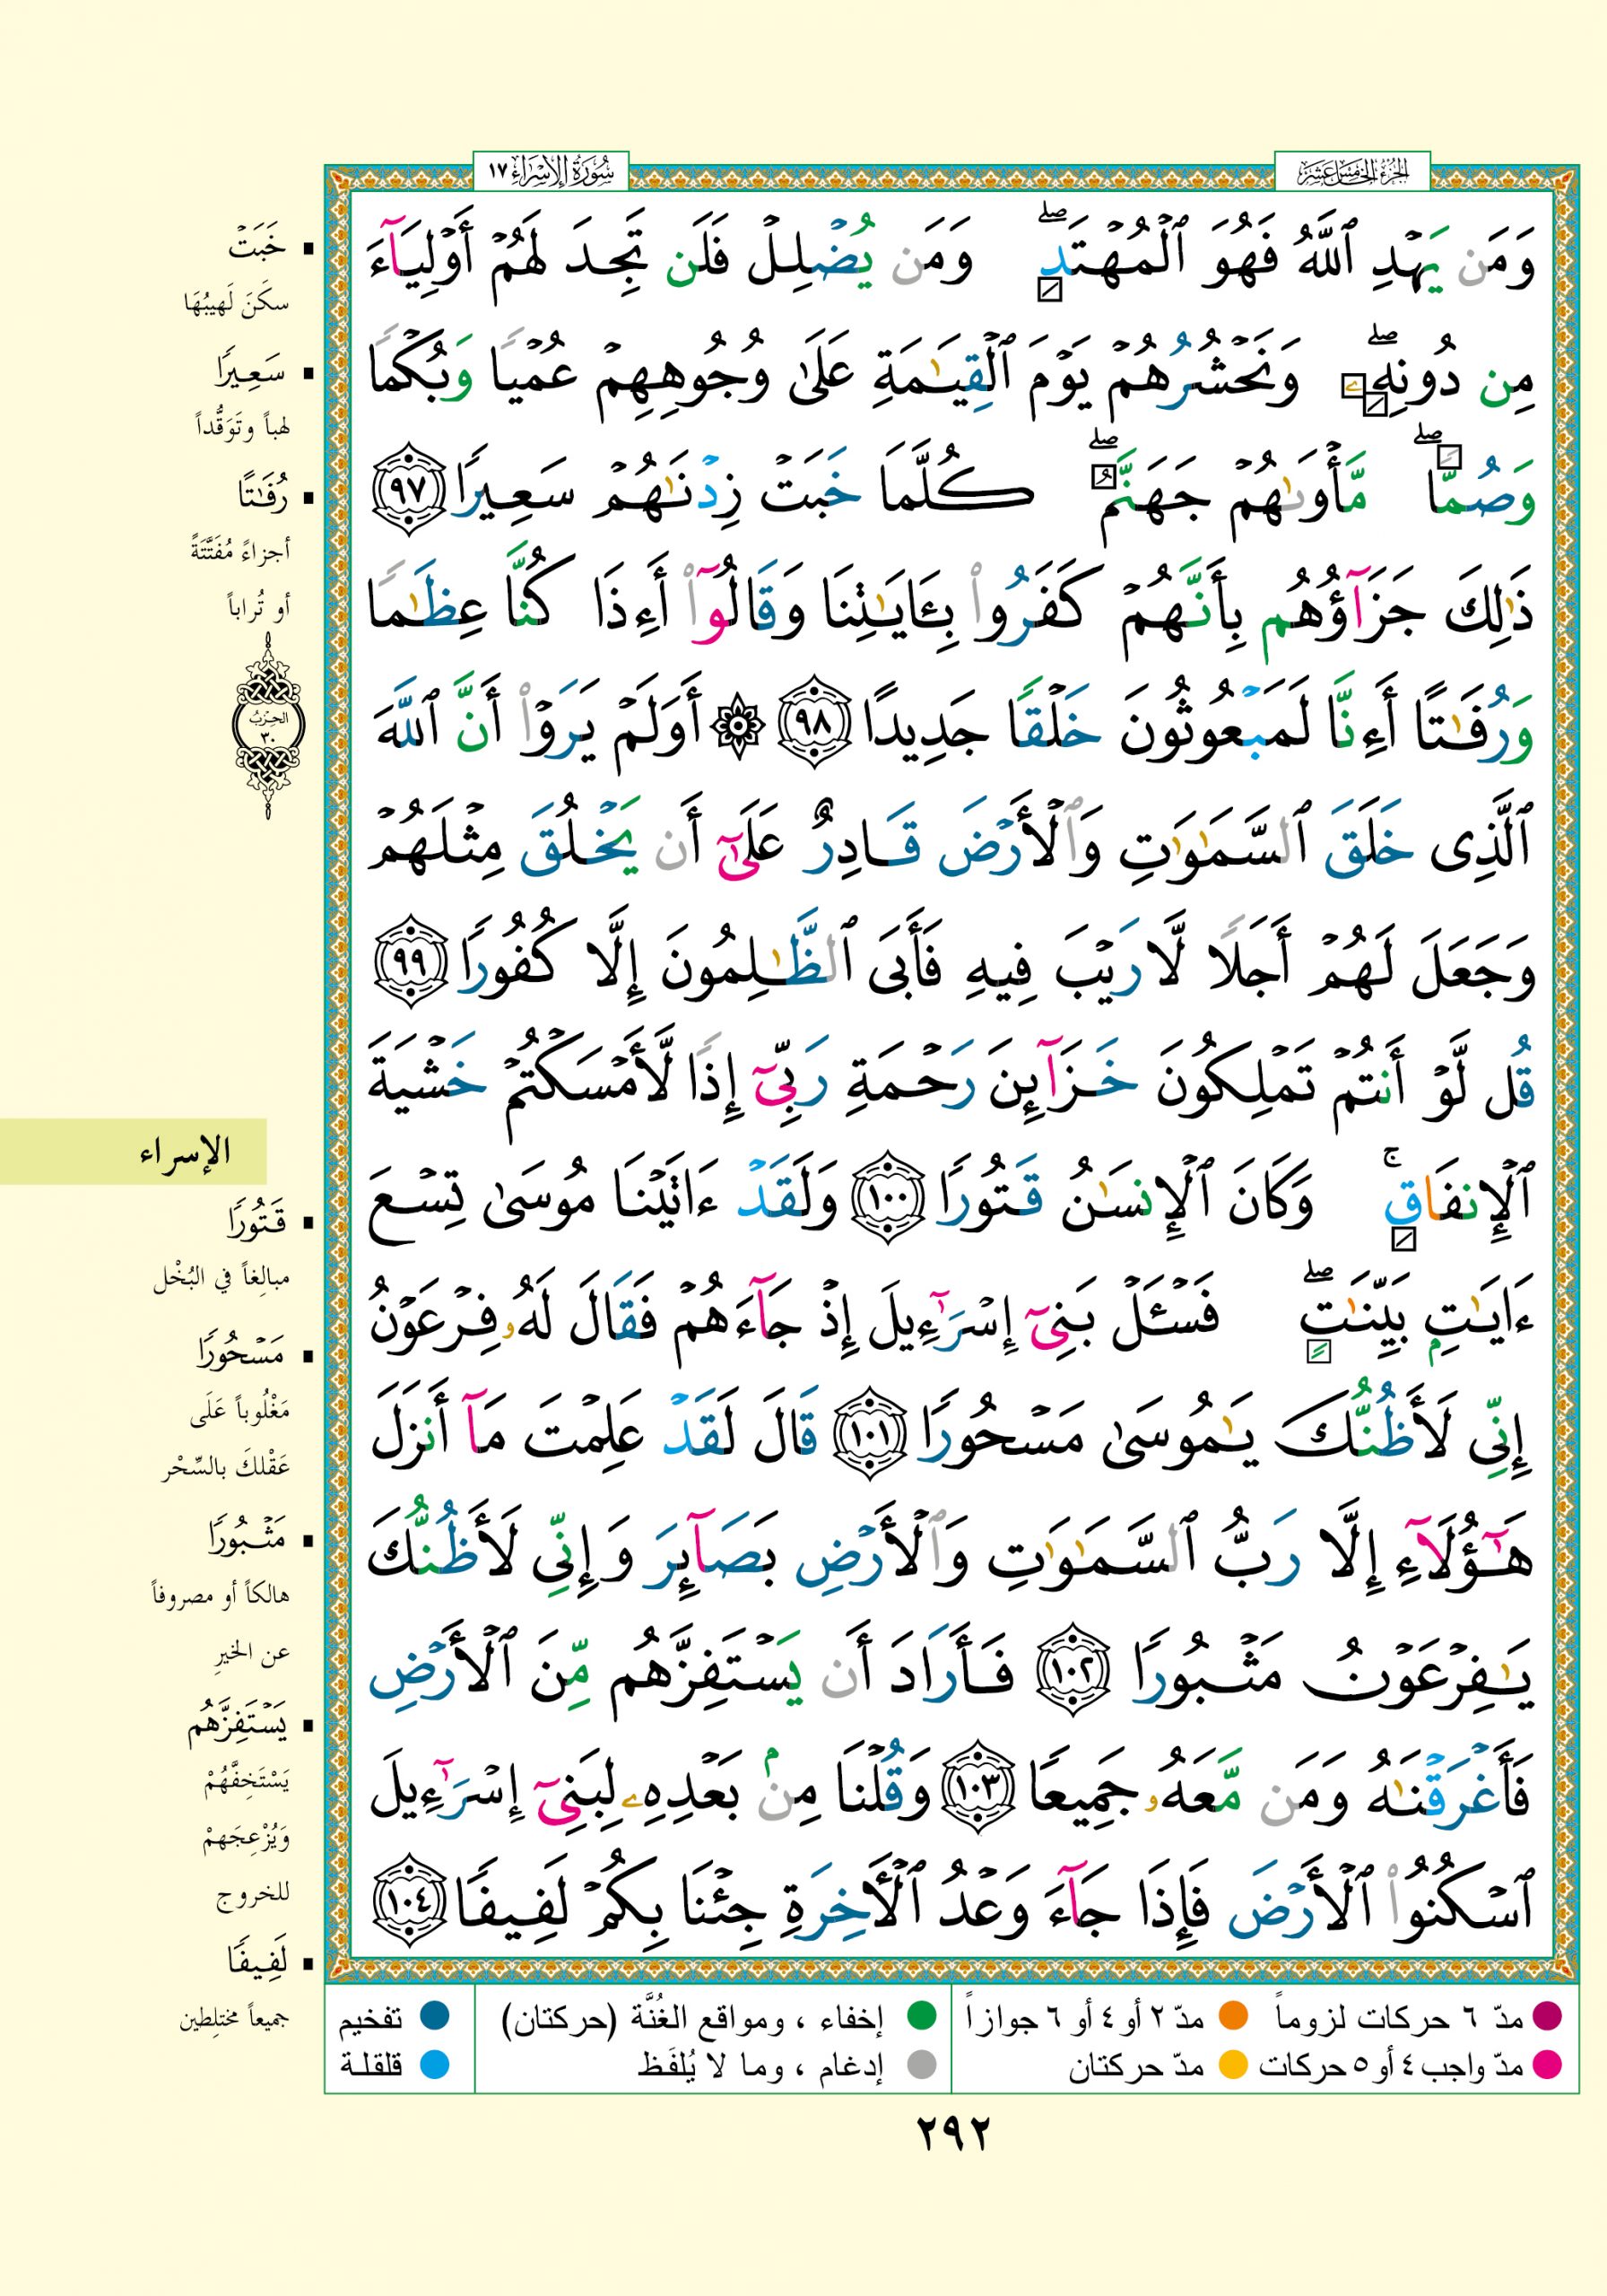 الجزء الخامس عشر
سورة الإسراء ١٧
وَمَن يَهْدِ ٱللَّهُ فَهُوَ ٱلْمُهْتَدِ ۖ وَمَن يُضْلِلْ فَلَن تَجِدَ لَهُمْ أَوْلِيَآءَ
مِن دُونِهِۦ ۖ وَنَحْشُرُهُمْ يَوْمَ ٱلْقِيَـٰمَةِ عَلَىٰ وُجُوهِهِمْ عُمْيًا وَبُكْمًا
وَصُمًّا ۖ مَّأْوَىٰهُمْ جَهَنَّمُ ۖ كُلَّمَا خَبَتْ زِدْنَـٰهُمْ سَعِيرًا ٩٧
ذَٰلِكَ جَزَآؤُهُم بِأَنَّهُمْ كَفَرُوا۟ بِـَٔايَـٰتِنَا وَقَالُوٓا۟ أَءِذَا كُنَّا عِظَـٰمًا
وَرُفَـٰتًا أَءِنَّا لَمَبْعُوثُونَ خَلْقًا جَدِيدًا ٩٨ ۞ أَوَلَمْ يَرَوْا۟ أَنَّ ٱللَّهَ
ٱلَّذِى خَلَقَ ٱلسَّمَـٰوَٰتِ وَٱلْأَرْضَ قَادِرٌ عَلَىٰٓ أَن يَخْلُقَ مِثْلَهُمْ
وَجَعَلَ لَهُمْ أَجَلًا لَّا رَيْبَ فِيهِ فَأَبَى ٱلظَّـٰلِمُونَ إِلَّا كُفُورًا ٩٩
قُل لَّوْ أَنتُمْ تَمْلِكُونَ خَزَآئِنَ رَحْمَةِ رَبِّىٓ إِذًا لَّأَمْسَكْتُمْ خَشْيَةَ
ٱلْإِنفَاقِ ۚ وَكَانَ ٱلْإِنسَـٰنُ قَتُورًا ١٠٠ وَلَقَدْ ءَاتَيْنَا مُوسَىٰ تِسْعَ
ءَايَـٰتٍۭ بَيِّنَـٰتٍ ۖ فَسْـَٔلْ بَنِىٓ إِسْرَٰٓءِيلَ إِذْ جَآءَهُمْ فَقَالَ لَهُۥ فِرْعَوْنُ
إِنِّى لَأَظُنُّكَ يَـٰمُوسَىٰ مَسْحُورًا ١٠١ قَالَ لَقَدْ عَلِمْتَ مَآ أَنزَلَ
هَـٰٓؤُلَآءِ إِلَّا رَبُّ ٱلسَّمَـٰوَٰتِ وَٱلْأَرْضِ بَصَآئِرَ وَإِنِّى لَأَظُنُّكَ
يَـٰفِرْعَوْنُ مَثْبُورًا ١٠٢ فَأَرَادَ أَن يَسْتَفِزَّهُم مِّنَ ٱلْأَرْضِ
فَأَغْرَقْنَـٰهُ وَمَن مَّعَهُۥ جَمِيعًا ١٠٣ وَقُلْنَا مِنۢ بَعْدِهِۦ لِبَنِىٓ إِسْرَٰٓءِيلَ
ٱسْكُنُوا۟ ٱلْأَرْضَ فَإِذَا جَآءَ وَعْدُ ٱلْـَٔاخِرَةِ جِئْنَا بِكُمْ لَفِيفًا ١٠٤
خَبَتْ
سكَنَ لَهِيبُهَا
سَعِيرًا
لهباً وتَوَقُّداً
رُفَـٰتًا
أجزاءً مُفَتَّتَةً
أو تُراباً
الحزب
٣٠
الإسراء
قَتُورًا
مبالِغاً في البُخْل
مَسْحُورًا
مَغْلُوباً عَلَى
عَقْلكَ بالسِّحْر
مَثْبُورًا
هالكاً أو مصروفاً
عن الخيرِ
يَسْتَفِزَّهُم
يَسْتَخِفَّهُمْ
وَيُزْعِجَهمْ
للخروج
لَفِيفًا
جميعاً مختلِطين
مدّ ٦ حركات لزوماً
مدّ ٢ أو ٤ أو ٦ جوازاً
إخفاء ، ومواقع الغُنَّة (حركتان)
تفخيم
مدّ واجب ٤ أو ٥ حركات
مدّ حركتان
إدغام ، وما لا يُلفَظ
قلقلة
٢٩٢